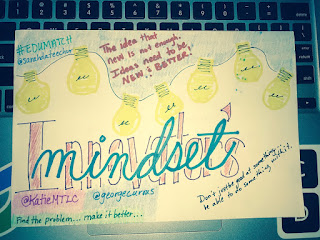 #EDUMATCH
@sarahdateechur
The idea that
new is not enough.
Ideas need to be
NEW & BETTER.
Innovator's
mindset
@KatieMTLC
@georgecouros
Don't just be good at something,
be able to do something with it.
Find the problem... make it better...